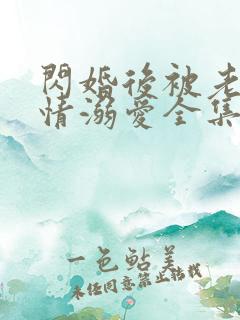 閃婚後被老
情溺愛全集
一色鮎美
未經同意禁止轉載